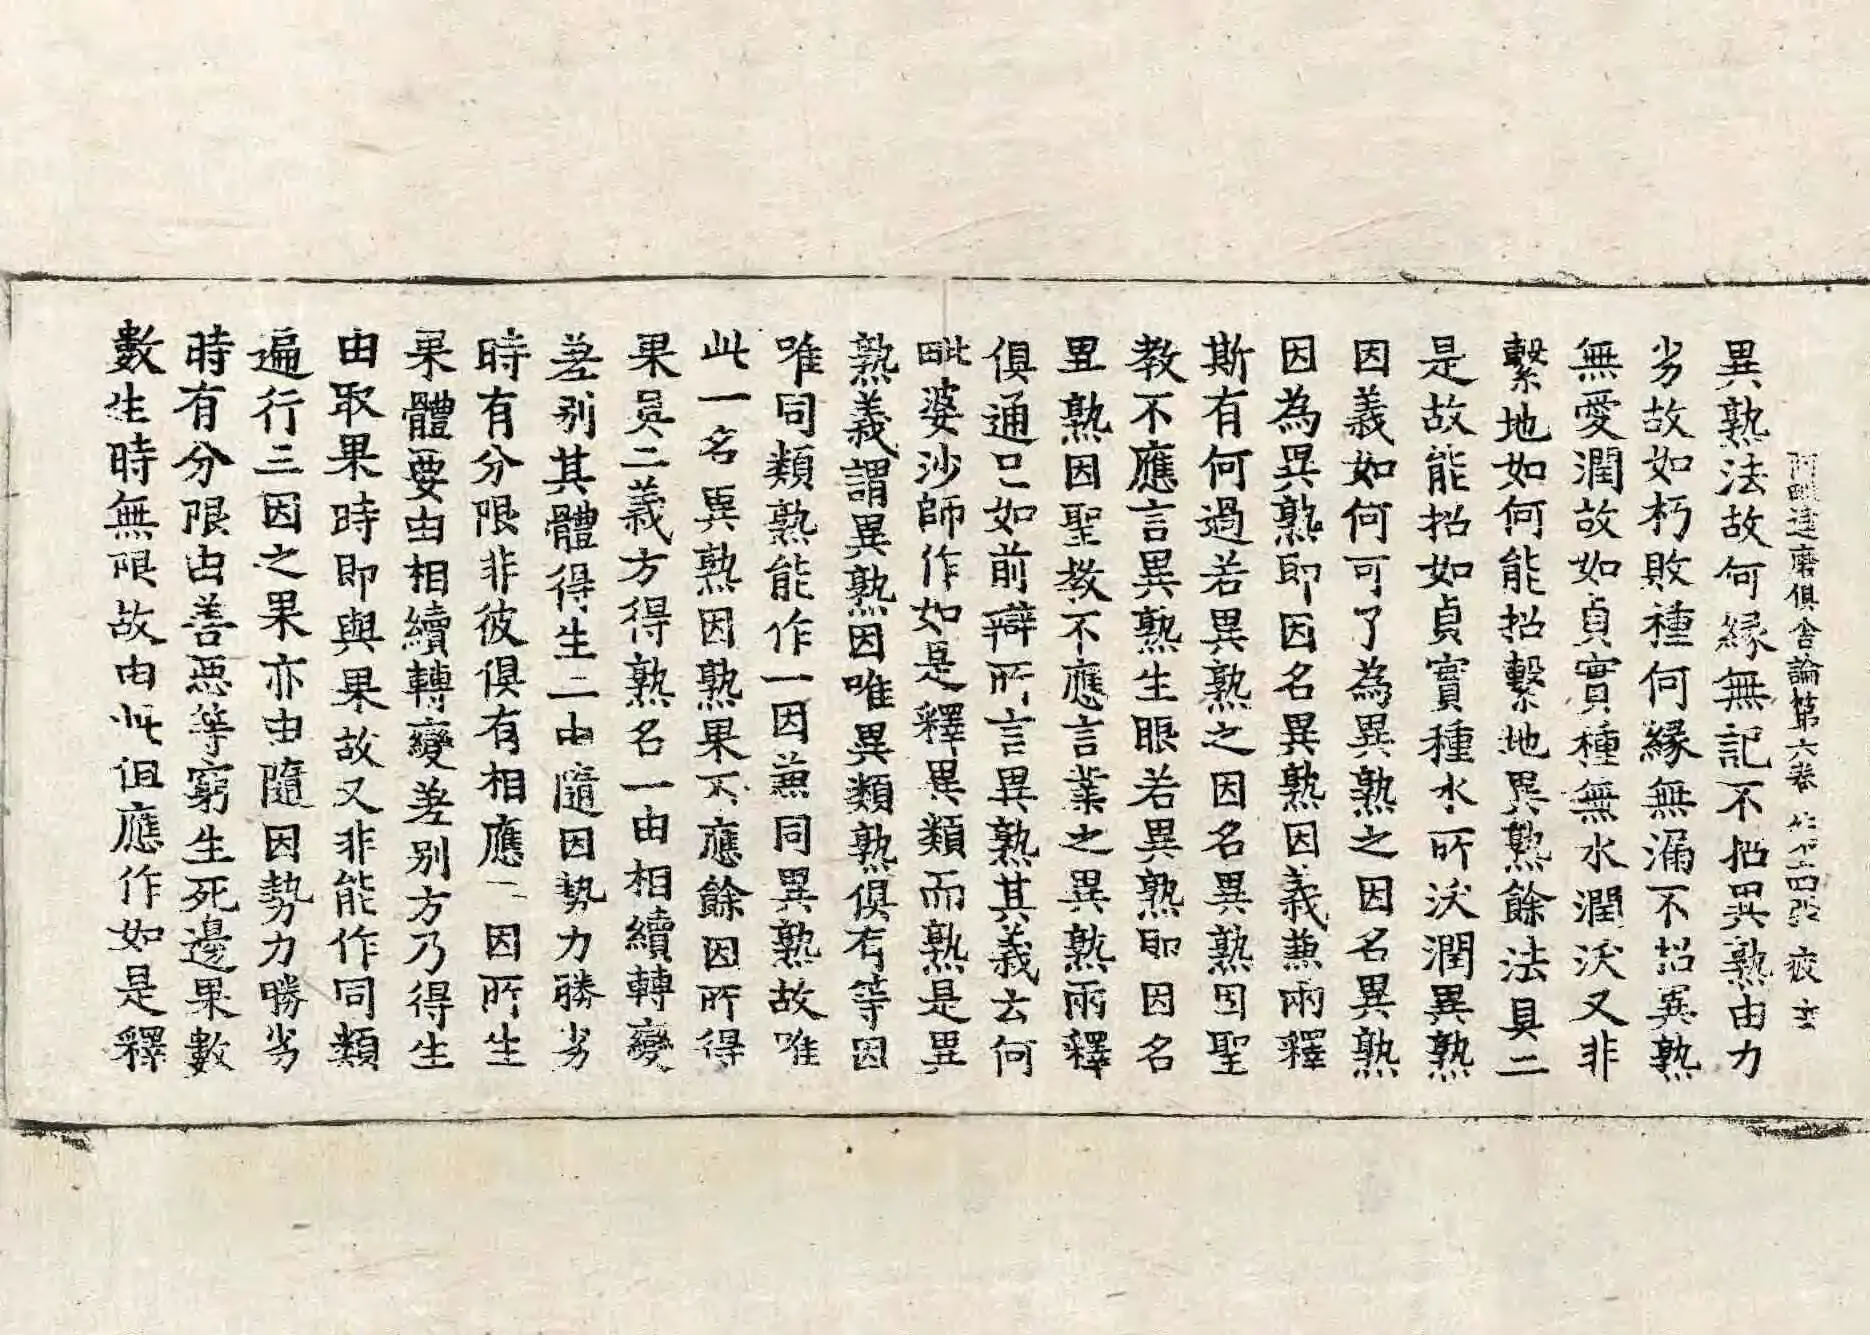 阿毗達磨俱舍論第六卷 四張 疲
異熟法故何緣無記不招異熟由力
劣故如朽敗種何緣無漏不招異熟
無愛潤故如貞實種無水潤沃又非
繫地如何能招繫地異熟餘法具二
是故能招如貞實種水所沃潤異熟
因義如何可了為異熟之因名異熟
因為異熟即因名異熟因義兼兩釋
斯有何過若異熟之因名異熟因聖
教不應言異熟生眼若異熟即因名
異熟因聖教不應言業之異熟兩釋
俱通已如前辯所言異熟其義云何
毗婆沙師作如是釋異類而熟是異
熟義謂異熟因唯異類熟俱有等因
唯同類熟能作一因兼同異熟故唯
此一名異熟因熟果不應餘因所得
果具二義方得熟名一由相續轉變
差別其體得生二由隨因勢力勝劣
時有分限非彼俱有相應二因所生
果體要由相續轉變差別方乃得生
由取果時即與果故又非能作同類
遍行三因之果亦由隨因勢力勝劣
時有分限由善惡等窮生死邊果數
數生時無限故由此但應作如是釋